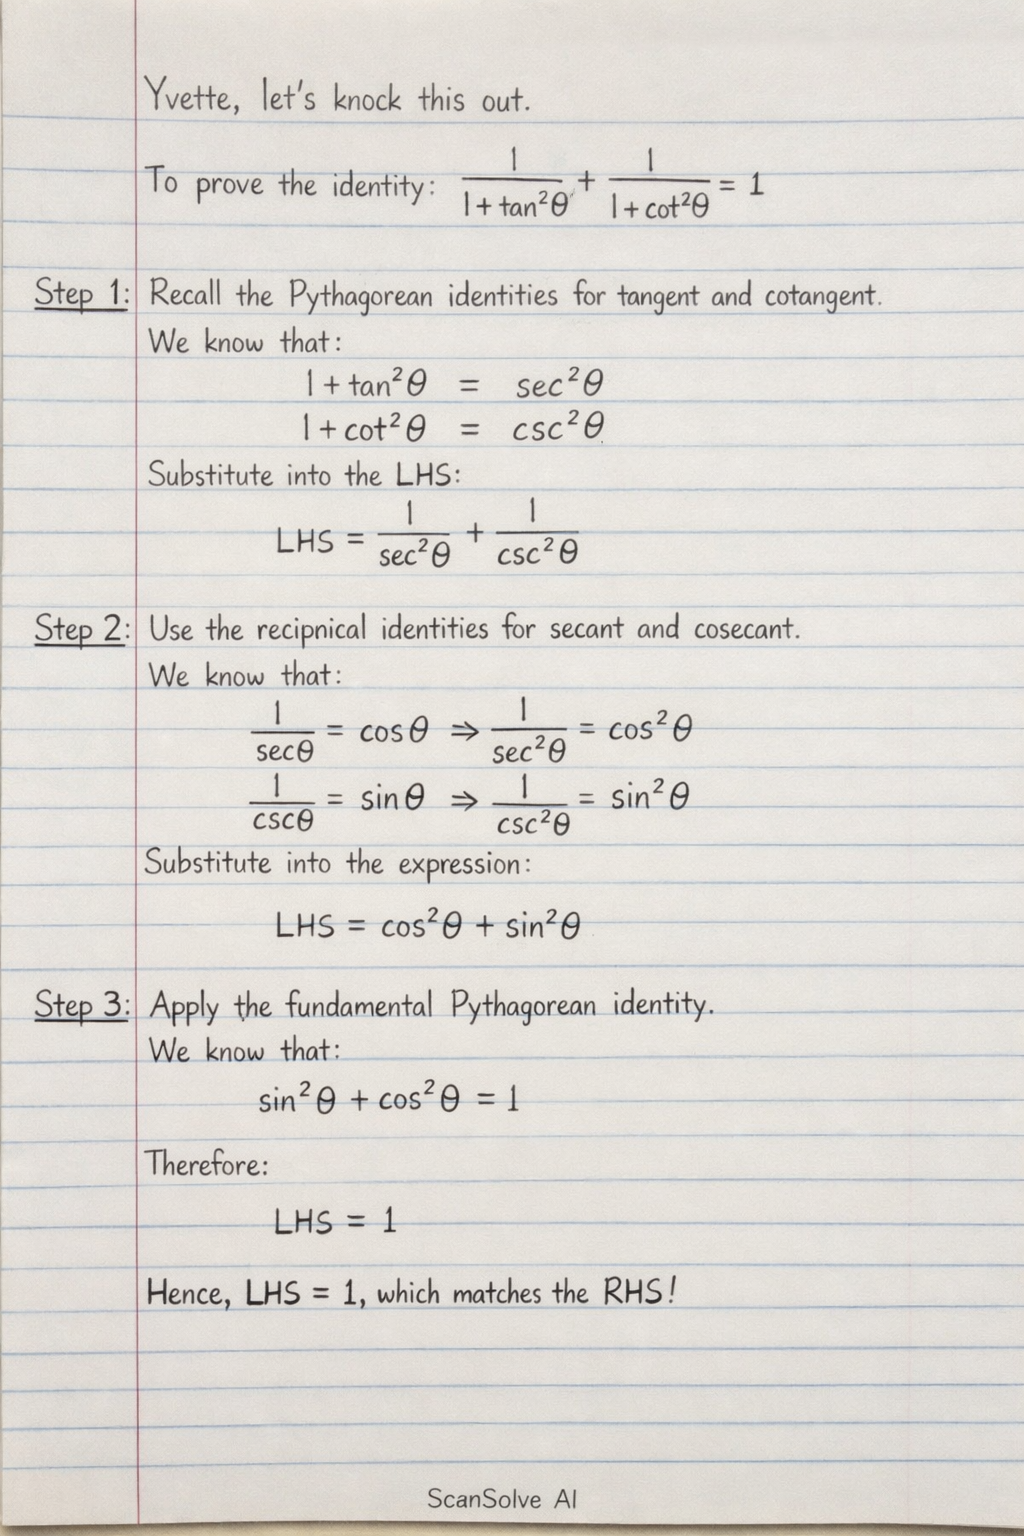 Yvette, let's knock this out.
To prove the identity: 1/(1+tan²θ) + 1/(1+cot²θ) = 1
Step 1: Recall the Pythagorean identities for tangent and cotangent.
We know that:
1+tan²θ = sec²θ
1+cot²θ = csc²θ
Substitute into the LHS:
LHS = 1/sec²θ + 1/csc²θ
Step 2: Use the recipnical identities for secant and cosecant.
We know that:
1/secθ = cosθ ⇒ 1/sec²θ = cos²θ
1/cscθ = sinθ ⇒ 1/csc²θ = sin²θ
Substitute into the expression:
LHS = cos²θ + sin²θ
Step 3: Apply the fundamental Pythagorean identity.
We know that:
sin²θ + cos²θ = 1
Therefore:
LHS = 1
Hence, LHS = 1, which matches the RHS!
ScanSolve AI